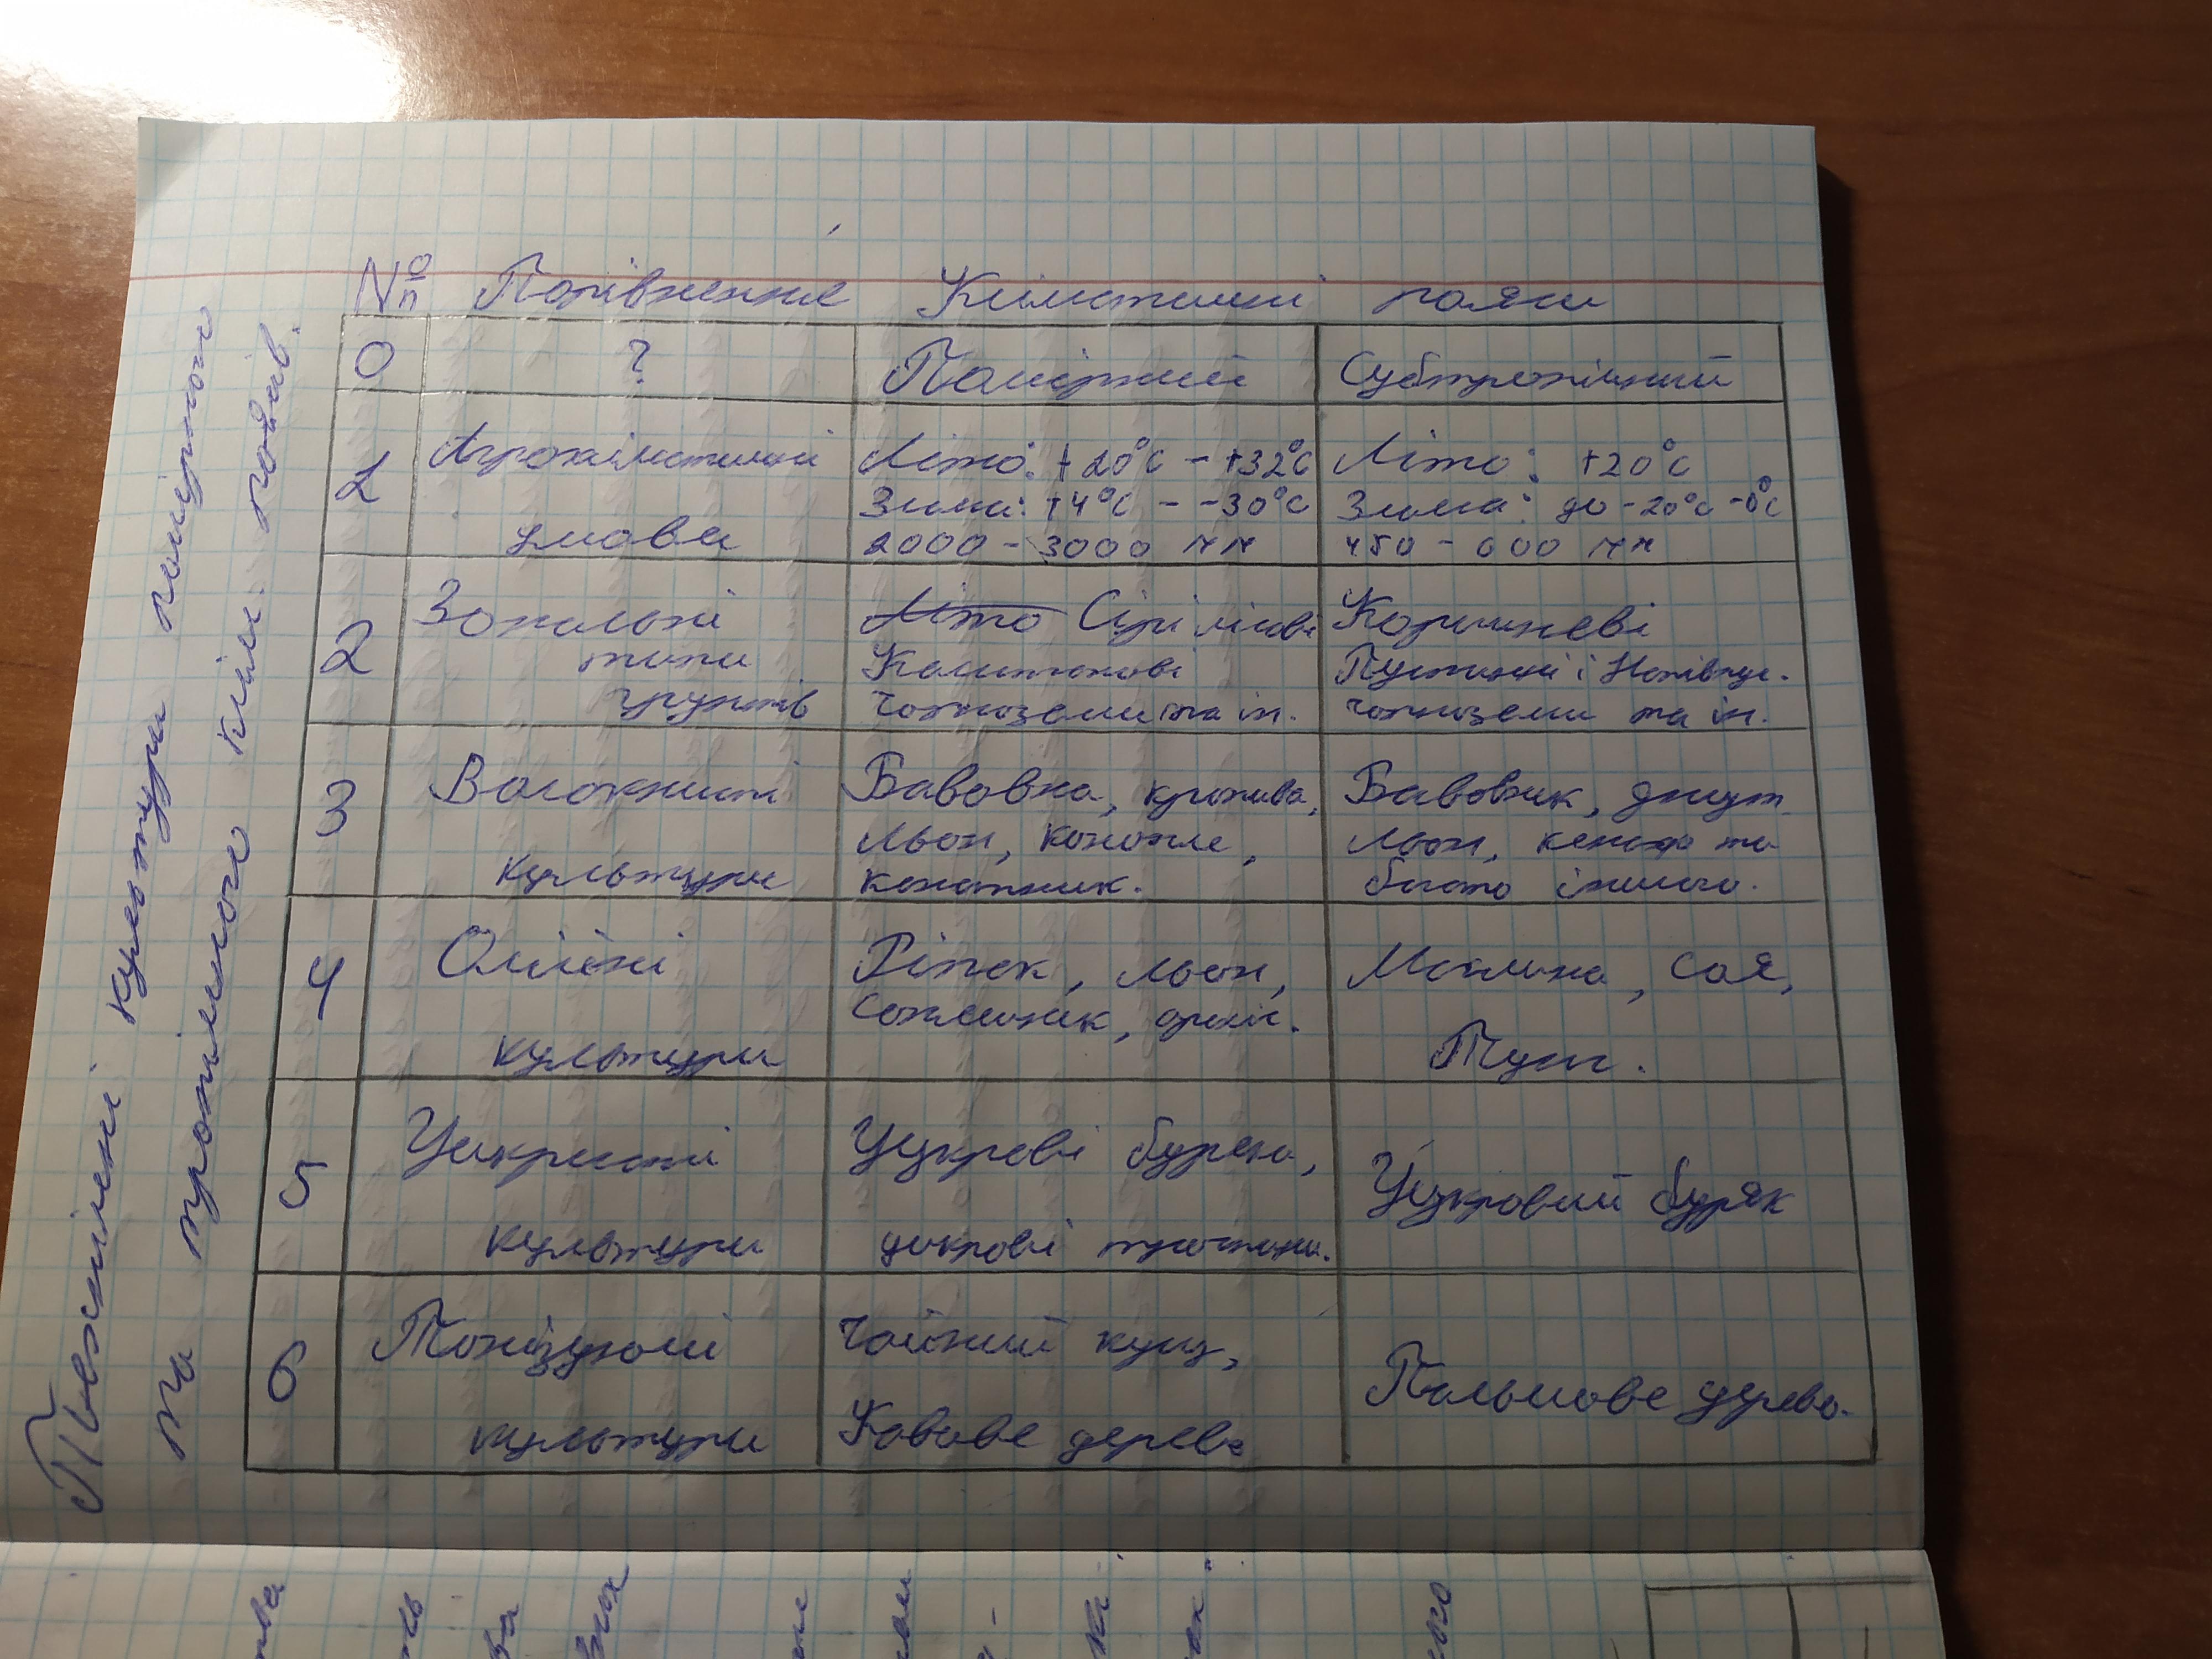 Технічні культури помірного
та тропічного клім. поясів.
№ п Порівняння Кліматичні пояси
0 ? Помірний Субтропічний
1 Агрокліматичні умови
Літо: +20°C - +32°C
Зима: +4°C - -30°C
2000 - 3000 мм
Літо: +20°C
Зима: до -20°C -0°C
450 - 600 мм
2 Зональні
типи
ґрунтів
Літо Сірі лісові
Каштанові
Чорноземи та ін.
Коричневі
Пустинні і Напівпус.
Чорноземи та ін.
3 Волокнисті
культури
Бавовна, кропива,
льон, конопле,
канатник.
Бавовник, джут
льон, кенаф та
багато іншого.
4 Олійні
культури
Ріпак, льон,
соняшник, арахіс.
Маслина, соя,
Тунг.
5 Цукристі
культури
Цукрові буряки,
цукрові тростини.
Цукровий буряк
6 Тонізуючі
культури
Чайний кущ,
Кавове дерево
Пальмове дерево.